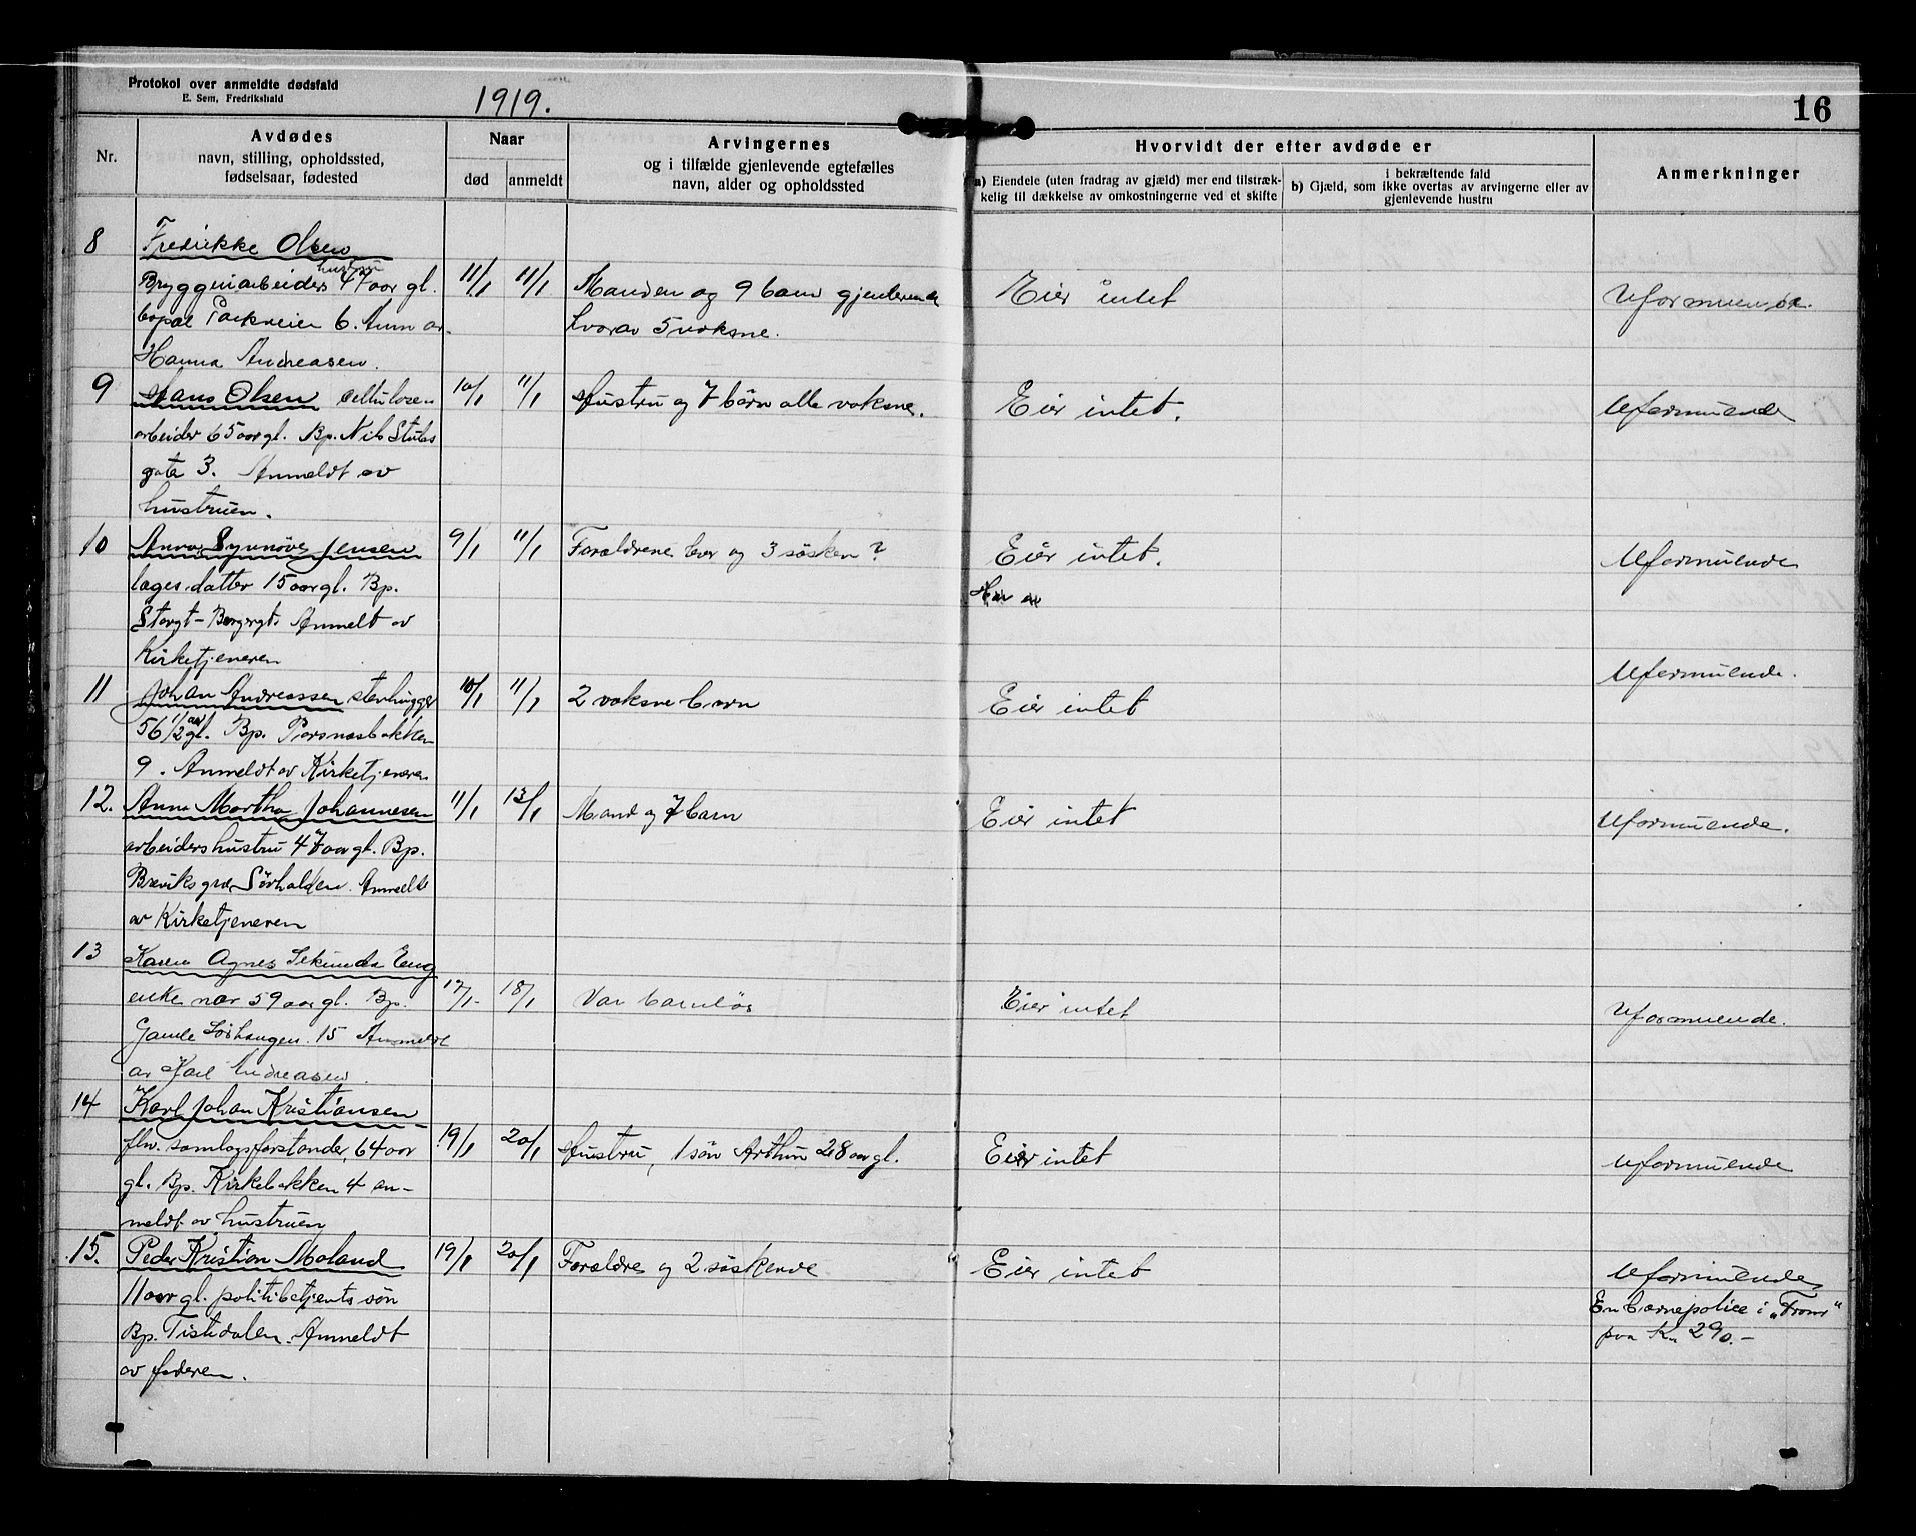 Protokol over anmeldte dødsfald
E. Sem, Fredrikshald
1919.
16
Nr.
Avdødes
navn, stilling, opholdssted,
fødselsaar, fødested
Naar
død
anmeldt
Arvingernes
og i tilfælde gjenlevende egtefælles
navn, alder og opholdssted
Hvorvidt der efter avdøde er
a) Eiendele (uten fradrag av gjæld) mer end tilstræk-
kelig til dækkelse av omkostningerne ved et skifte
i bekræftende fald
b) Gjæld, som ikke overtas av arvingerne eller av
gjenlevende hustru
Anmerkninger
8
Fredrikke Olsen
hustru
Bryggeriarbeiders 47 aar gl.
bopæl Parkveien 6. Anm av
Hanna Andreasen.
11/1
11/1
Manden og 9 barn gjenlevende
hvorav 5 voksne.
Eier intet
Uformuende.
9
Hans Olsen cellulosen
arbeider 65 aar gl. Bp. Nils Stubs
gate 3. Anmeldt av
hustruen.
10/1
11/1
Hustru og 7 børn alle voksne.
Eier intet.
Uformuende
10
Anna Synnøve Jensen
læges datter 15 aar gl. Bp.
Storgt - Borgergt. Anmelt av
Kirketjeneren
9/1
11/1
Forældrene lever og 3 søsken?
Eier intet.
Uformuende
11
Johan Andreassen stenhugger
56 1/2 aar gl. Bp. Porsnæsbakken
9. Anmeldt av Kirketjeneren
10/1
11/1
2 voksne barn
Eier intet
Uformuende.
12.
Anna Martha Johannesen
arbeiders hustru 47 aar gl. Bp.
Sørhalden. Anmeldt
av Kirketjeneren
11/1
13/1
Mand og 7 barn
Eier intet
Uformuende.
13
Karen Agnes Sekunda Eng
enke nær 59 aar gl. Bp.
Gamle Sørhaugen 15 Anmeldt
av Karl Andreasen.
17/1
18/1
Var barnløs
Eier intet
Uformuende.
14
Karl Johan Kristiansen
fhv. samlagsforstander, 64 aar
gl. Bp. Kirkebakken 4 an-
meldt av hustruen
19/1
20/1
Hustru, 1 søn Arthur 28 aar gl.
Eier intet
Uformuende
15.
Peder Kristian Moland
11 aar gl. politibetjents søn
Bp. Tistedalen. Anmeldt
av faderen.
19/1
20/1
Forældre og 2 søskende
Eier intet
Uformuende
En barnepolice i „Fram"
paa Kr. 290.-